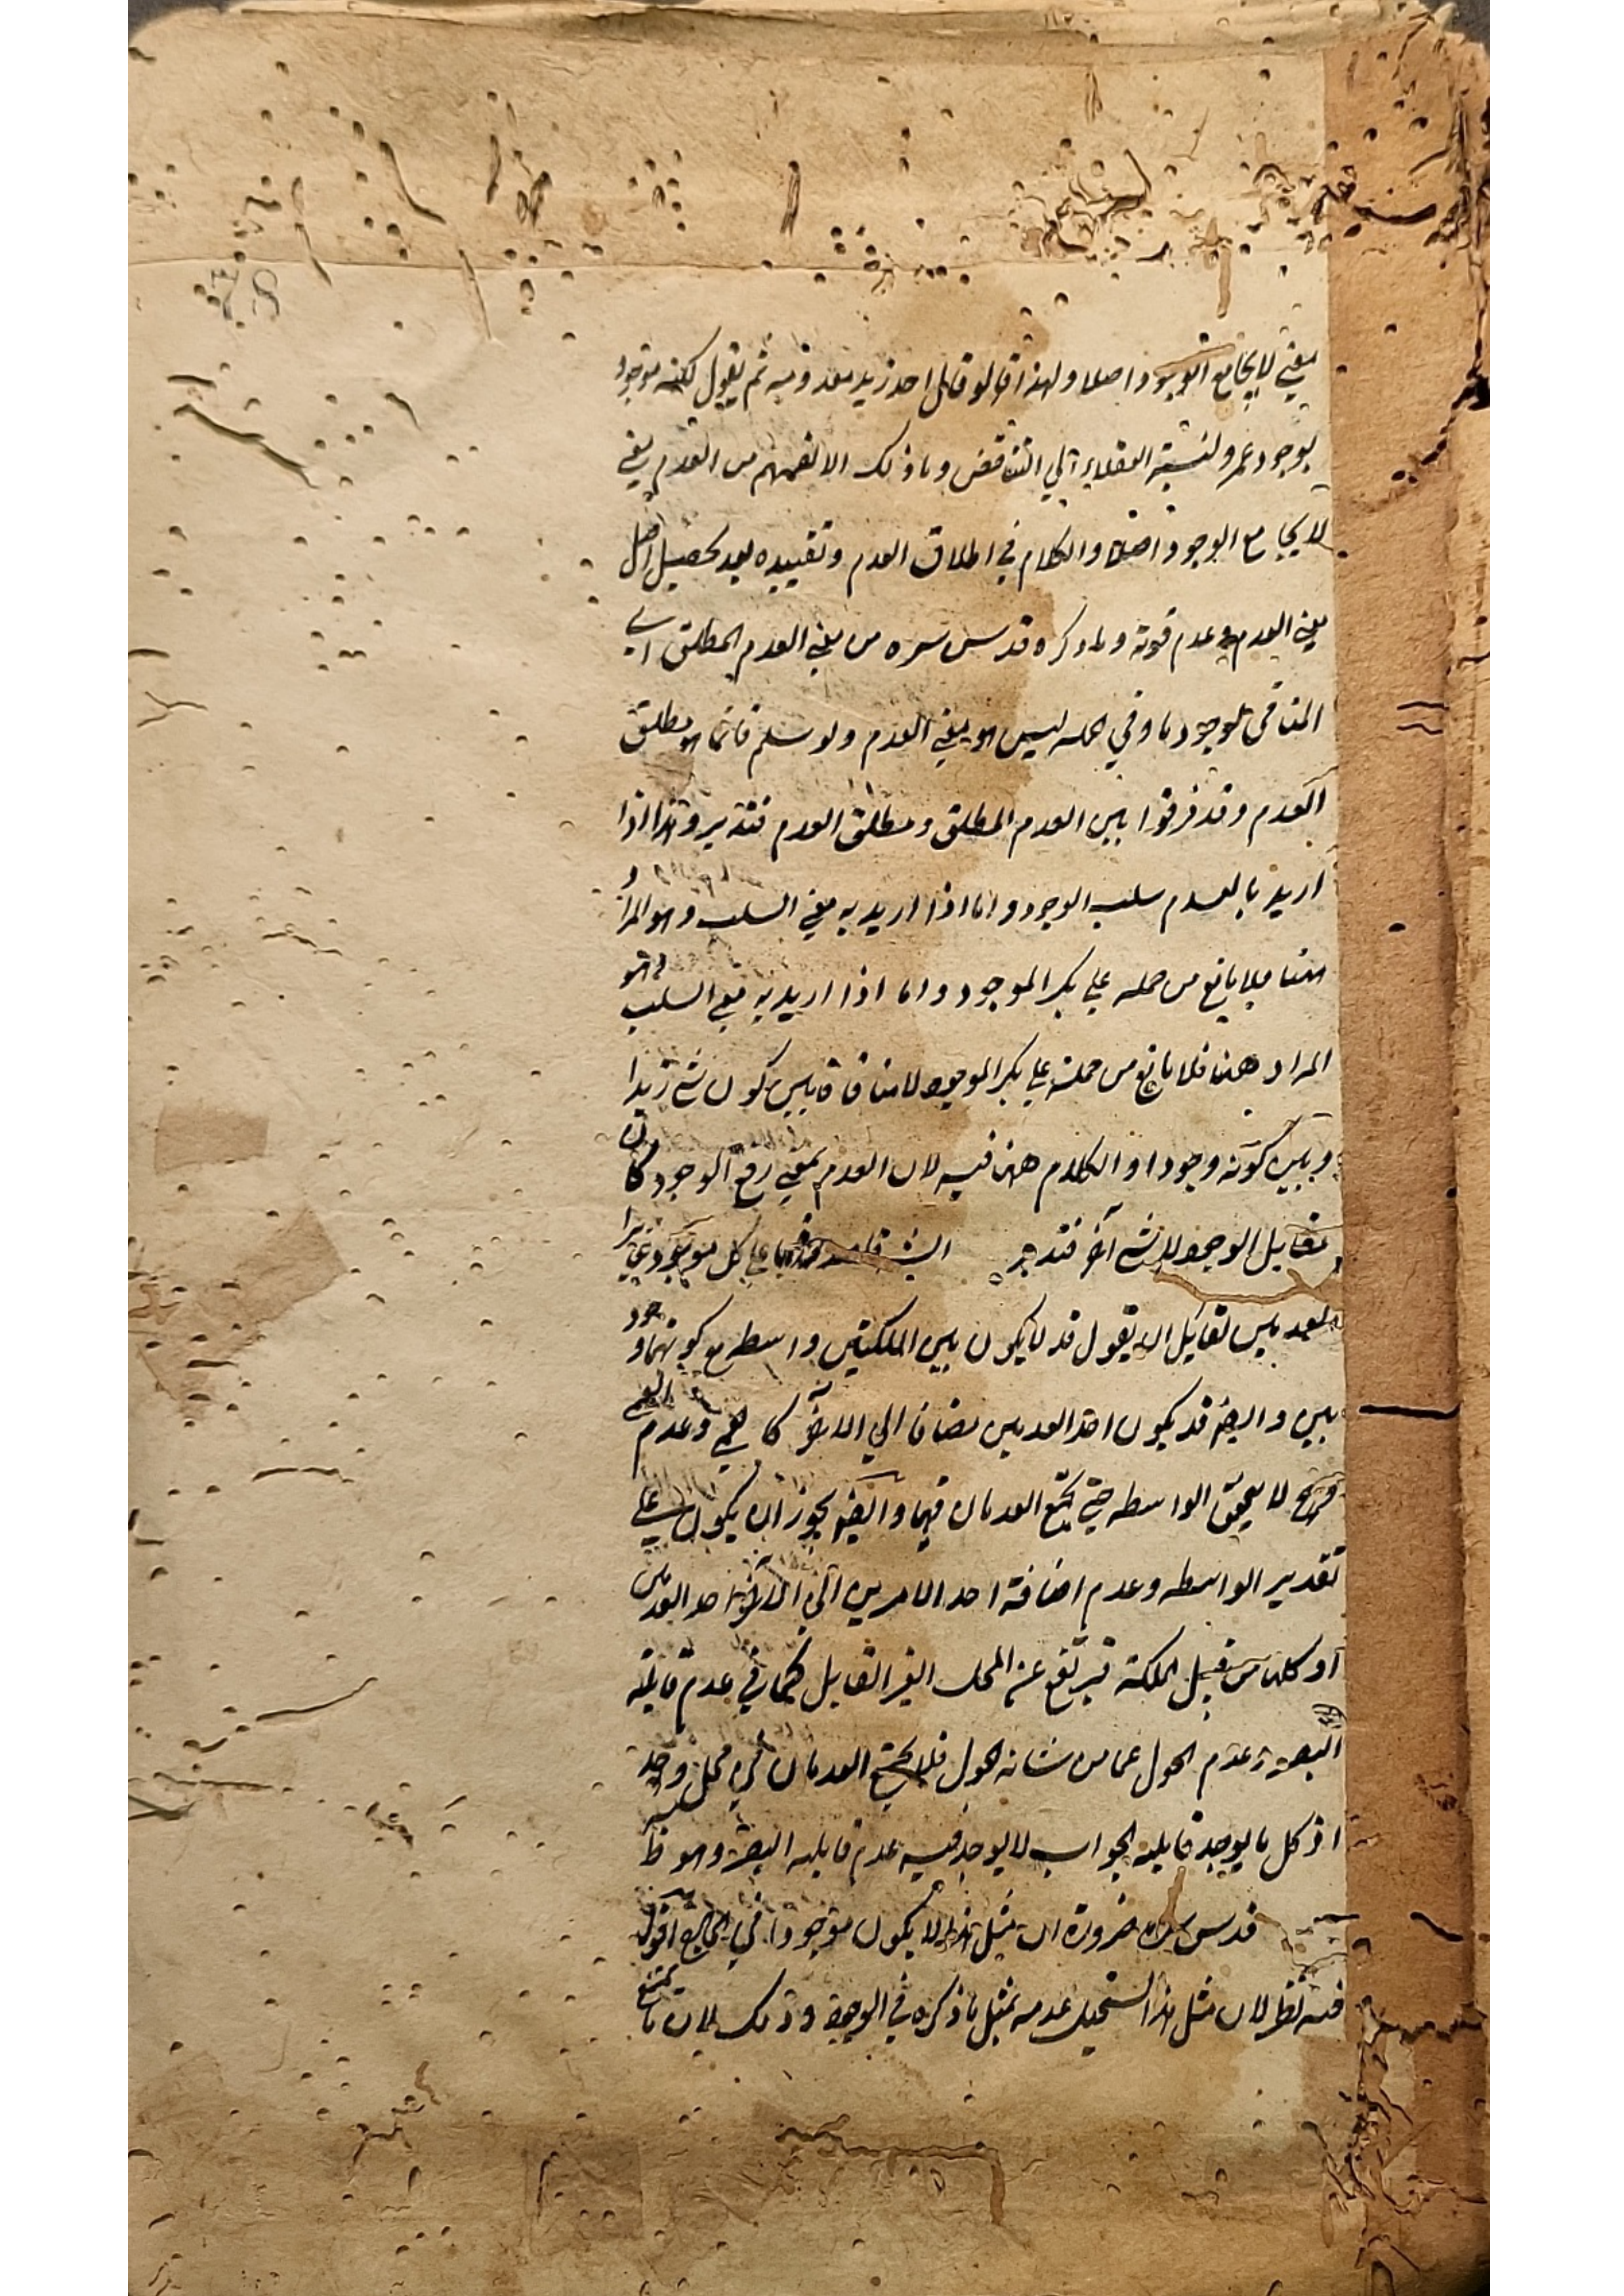 معنى لا يجامع الوجود اصلا ولهذا لو قال احد زيد معدوم ثم يقول لكنه موجود
بوجود عمرو لنسبه العقلاء الي التناقض وما ذلك الا لفهمهم من العدم معنى
لا يجامع الوجود اصلا والكلام في اطلاق العدم وتقييده بعد تحصيل اصل
معنى العدم وعدم قوته وما ذكره قدس سره من معنى العدم المطلق اى
المنافى للوجود ما وفي الجملة ليس هو معنى العدم ولو سلم فانما هو مطلق
العدم وقد فرقوا بين العدم المطلق ومطلق العدم فتدبر وهذا اذا
اريد بالعدم سلب الوجود واما اذا اريد به معنى السلب وهو المراد
ههنا فلا مانع من حمله على بكر الموجود واما اذا اريد به معنى السلب وهو
المراد ههنا فلا مانع من حمله على بكر الموجود لا منافاة بين كون شئ زيدا
وبين كونه وجودا والكلام ههنا فيه لان العدم بمعنى رفع الوجود كان
مقابل الوجود لا لشئ آخر فتدبر على كل موجود غير
العدمين تقابل ان يقول قد لا يكون بين الملكتين واسطه مع كونهما وجود
يين وايضا قد يكون احد العدمين مضافا الي الآخر كالعمى وعدم العمى
وح لا يتحقق الواسطه حتى يجتمع العدمان فيها وايضا يجوز ان يكون على
تقدير الواسطه وعدم اضافة احد الامرين الى الآخر احد العدمين
او كلاهما من قبيل الملكة فيرتفع عنه المحل الغير القابل كما في عدم قابلية
البصر وعدم الحول عما من شانه الحول فلا يجتمع العدمان في محل واحد
اذ كل ما يوجد قابلية لا يوجد فيه عدم قابلية البصر وهو ظ
قدس سره ضرورة ان مثل هذا لا يكون موجودا في الخارج اقول
فيه نظر لان مثل هذا يستحيل عدمه بمثل ما ذكره في الوجود وذلك لان ما يمتنع